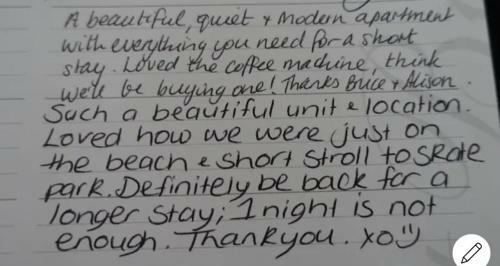 A beautiful, quiet + modern apartment
with everything you need for a short
stay. Loved the coffee machine, think
we'll be buying one! Thanks Brice + Alison.
Such a beautiful unit & location.
Loved how we were just on
the beach & short stroll to skate
park. Definitely be back for a
longer stay; 1 night is not
enough. Thankyou. xo